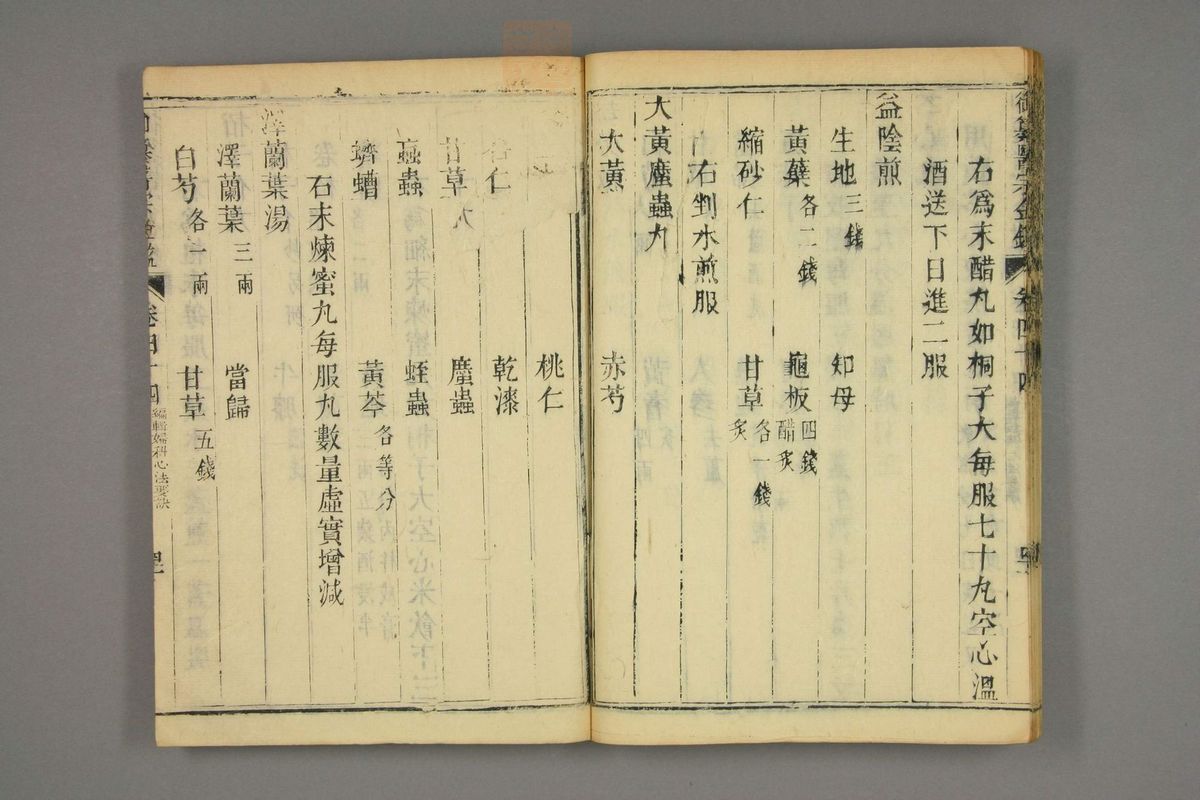 右爲末醋丸如桐子大每服七十丸空心溫
酒送下日進二服
益陰煎
生地三錢 知母
黃蘗各二錢 龜板四錢醋炙
縮砂仁 甘草各一錢炙
右剉水煎服
大黃䗪蟲丸
大黃 赤芍
桃仁
仁 乾漆
甘草 䗪蟲
蝱蟲 蛭蟲
蠐螬 黃芩各等分
右末煉蜜丸每服丸數量虛實增減
澤蘭葉湯
澤蘭葉三兩 當歸
白芍各一兩 甘草五錢
御纂醫宗金鑑 卷四十四
卷四十四 編輯婦科心法要訣